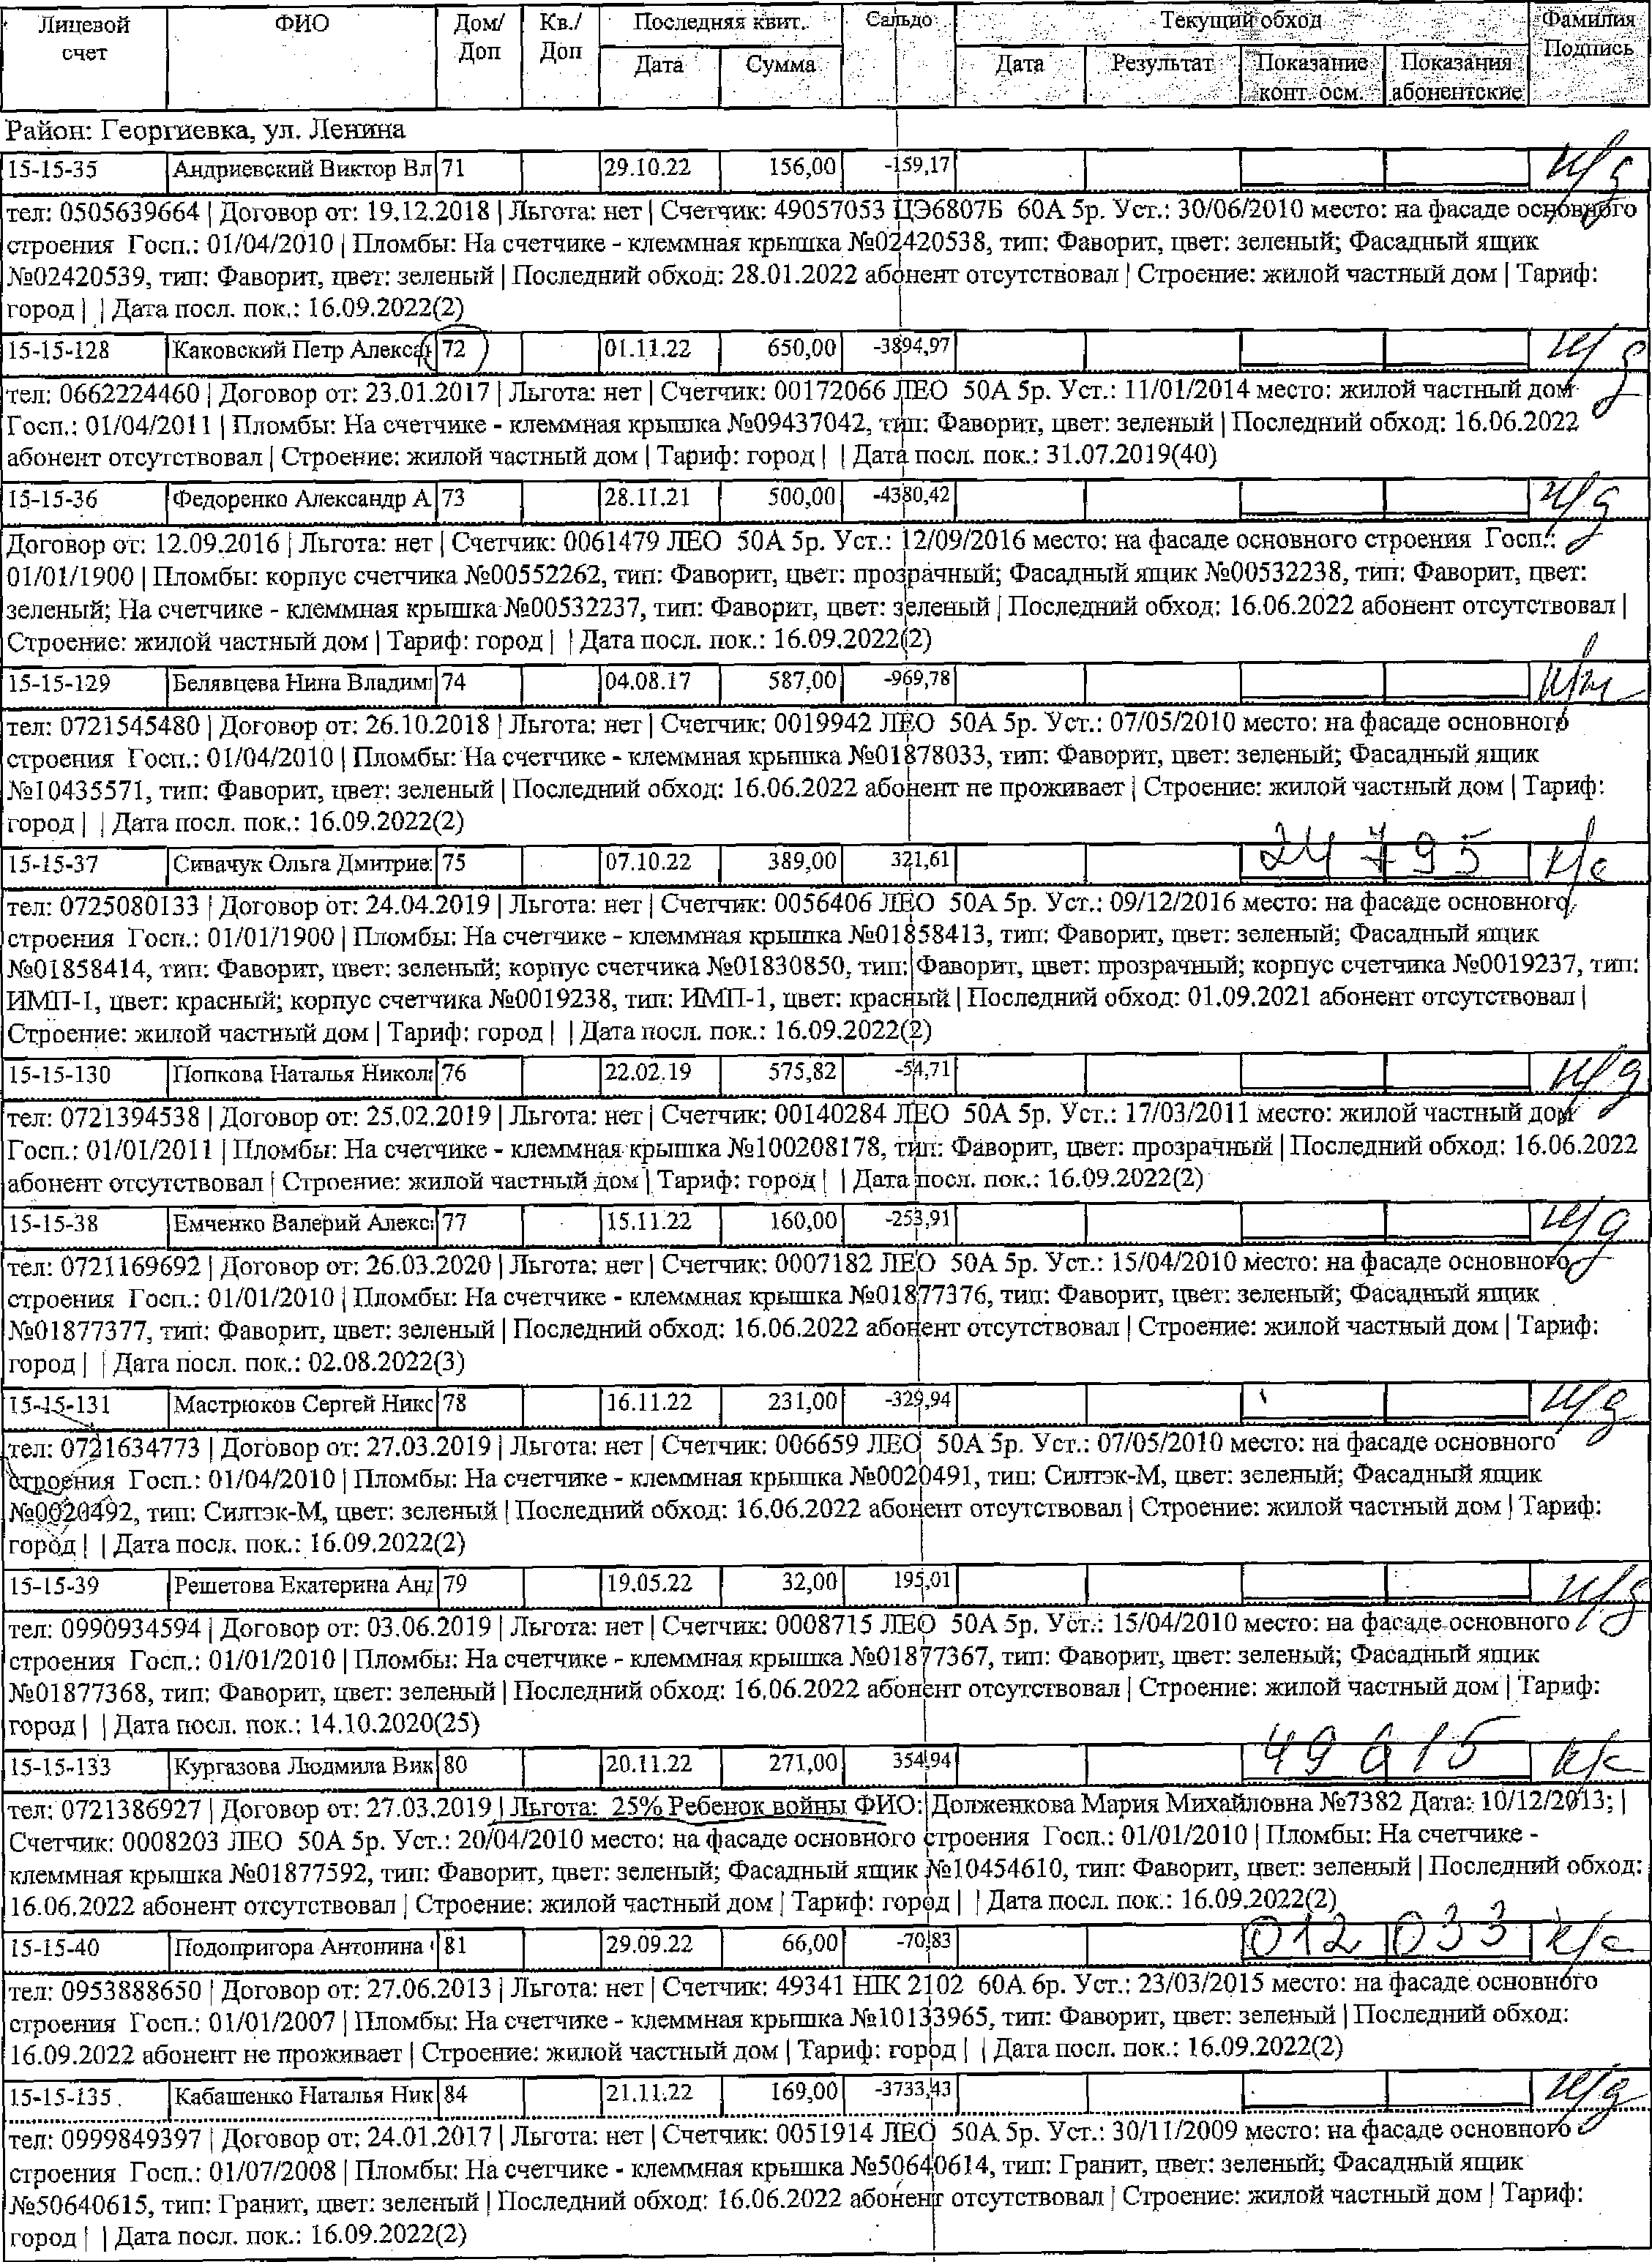 Лицевой счет ФИО Дом/ Доп Кв./ Доп Последняя квит. Дата Сумма Сальдо Текущий обход Дата Результат Показание конт. осм. Показания абонентские Фамилия Подпись
Район: Георгиевка, ул. Ленина
15-15-35 Андриевский Виктор Вл 71 29.10.22 156,00 -159,17 н/д
тел: 0505639664 | Договор от: 19.12.2018 | Льгота: нет | Счетчик: 49057053 ЦЭ6807Б 60А 5р. Уст.: 30/06/2010 место: на фасаде основного
строения Госп.: 01/04/2010 | Пломбы: На счетчике - клеммная крышка №02420538, тип: Фаворит, цвет: зеленый; Фасадный ящик
№02420539, тип: Фаворит, цвет: зеленый | Последний обход: 28.01.2022 абонент отсутствовал | Строение: жилой частный дом | Тариф:
город | | Дата посл. пок.: 16.09.2022(2)
15-15-128 Каковский Петр Алекса 72 01.11.22 650,00 -3894,97 н/д
тел: 0662224460 | Договор от: 23.01.2017 | Льгота: нет | Счетчик: 00172066 ЛЕО 50А 5р. Уст.: 11/01/2014 место: жилой частный дом
Госп.: 01/04/2011 | Пломбы: На счетчике - клеммная крышка №09437042, тип: Фаворит, цвет: зеленый | Последний обход: 16.06.2022
абонент отсутствовал | Строение: жилой частный дом | Тариф: город | | Дата посл. пок.: 31.07.2019(40)
15-15-36 Федоренко Александр А 73 28.11.21 500,00 -4380,42 н/д
Договор от: 12.09.2016 | Льгота: нет | Счетчик: 0061479 ЛЕО 50А 5р. Уст.: 12/09/2016 место: на фасаде основного строения Госп.:
01/01/1900 | Пломбы: корпус счетчика №00552262, тип: Фаворит, цвет: прозрачный; Фасадный ящик №00532238, тип: Фаворит, цвет:
зеленый; На счетчике - клеммная крышка №00532237, тип: Фаворит, цвет: зеленый | Последний обход: 16.06.2022 абонент отсутствовал |
Строение: жилой частный дом | Тариф: город | | Дата посл. пок.: 16.09.2022(2)
15-15-129 Белявцева Нина Владим 74 04.08.17 587,00 -969,78
тел: 0721545480 | Договор от: 26.10.2018 | Льгота: нет | Счетчик: 0019942 ЛЕО 50А 5р. Уст.: 07/05/2010 место: на фасаде основного
строения Госп.: 01/04/2010 | Пломбы: На счетчике - клеммная крышка №01878033, тип: Фаворит, цвет: зеленый; Фасадный ящик
№10435571, тип: Фаворит, цвет: зеленый | Последний обход: 16.06.2022 абонент не проживает | Строение: жилой частный дом | Тариф:
город | | Дата посл. пок.: 16.09.2022(2)
15-15-37 Сивачук Ольга Дмитрие 75 07.10.22 389,00 321,61 24795 к/с
тел: 0725080133 | Договор от: 24.04.2019 | Льгота: нет | Счетчик: 0056406 ЛЕО 50А 5р. Уст.: 09/12/2016 место: на фасаде основного
строения Госп.: 01/01/1900 | Пломбы: На счетчике - клеммная крышка №01858413, тип: Фаворит, цвет: зеленый; Фасадный ящик
№01858414, тип: Фаворит, цвет: зеленый; корпус счетчика №01830850, тип: Фаворит, цвет: прозрачный; корпус счетчика №0019237, тип:
ИМП-1, цвет: красный; корпус счетчика №0019238, тип: ИМП-1, цвет: красный | Последний обход: 01.09.2021 абонент отсутствовал |
Строение: жилой частный дом | Тариф: город | | Дата посл. пок.: 16.09.2022(2)
15-15-130 Попкова Наталья Никола 76 22.02.19 575,82 -54,71 н/д
тел: 0721394538 | Договор от: 25.02.2019 | Льгота: нет | Счетчик: 00140284 ЛЕО 50А 5р. Уст.: 17/03/2011 место: жилой частный дом
Госп.: 01/01/2011 | Пломбы: На счетчике - клеммная крышка №100208178, тип: Фаворит, цвет: прозрачный | Последний обход: 16.06.2022
абонент отсутствовал | Строение: жилой частный дом | Тариф: город | | Дата посл. пок.: 16.09.2022(2)
15-15-38 Емченко Валерий Алекс 77 15.11.22 160,00 -253,91 н/д
тел: 0721169692 | Договор от: 26.03.2020 | Льгота: нет | Счетчик: 0007182 ЛЕО 50А 5р. Уст.: 15/04/2010 место: на фасаде основного
строения Госп.: 01/01/2010 | Пломбы: На счетчике - клеммная крышка №01877376, тип: Фаворит, цвет: зеленый; Фасадный ящик
№01877377, тип: Фаворит, цвет: зеленый | Последний обход: 16.06.2022 абонент отсутствовал | Строение: жилой частный дом | Тариф:
город | | Дата посл. пок.: 02.08.2022(3)
15-15-131 Мастрюков Сергей Никс 78 16.11.22 231,00 -329,94 н/д
тел: 0721634773 | Договор от: 27.03.2019 | Льгота: нет | Счетчик: 006659 ЛЕО 50А 5р. Уст.: 07/05/2010 место: на фасаде основного
строения Госп.: 01/04/2010 | Пломбы: На счетчике - клеммная крышка №0020491, тип: Силтэк-М, цвет: зеленый; Фасадный ящик
№0020492, тип: Силтэк-М, цвет: зеленый | Последний обход: 16.06.2022 абонент отсутствовал | Строение: жилой частный дом | Тариф:
город | | Дата посл. пок.: 16.09.2022(2)
15-15-39 Решетова Екатерина Анд 79 19.05.22 32,00 195,01 н/д
тел: 0990934594 | Договор от: 03.06.2019 | Льгота: нет | Счетчик: 0008715 ЛЕО 50А 5р. Уст.: 15/04/2010 место: на фасаде основного
строения Госп.: 01/01/2010 | Пломбы: На счетчике - клеммная крышка №01877367, тип: Фаворит, цвет: зеленый; Фасадный ящик
№01877368, тип: Фаворит, цвет: зеленый | Последний обход: 16.06.2022 абонент отсутствовал | Строение: жилой частный дом | Тариф:
город | | Дата посл. пок.: 14.10.2020(25)
15-15-133 Кургазова Людмила Вик 80 20.11.22 271,00 354,94 49615 к/с
тел: 0721386927 | Договор от: 27.03.2019 | Льгота: 25% Ребенок войны ФИО: Долженкова Мария Михайловна №7382 Дата: 10/12/2013; |
Счетчик: 0008203 ЛЕО 50А 5р. Уст.: 20/04/2010 место: на фасаде основного строения Госп.: 01/01/2010 | Пломбы: На счетчике -
клеммная крышка №01877592, тип: Фаворит, цвет: зеленый; Фасадный ящик №10454610, тип: Фаворит, цвет: зеленый | Последний обход:
16.06.2022 абонент отсутствовал | Строение: жилой частный дом | Тариф: город | | Дата посл. пок.: 16.09.2022(2)
15-15-40 Подопригора Антонина 81 29.09.22 66,00 -70,83 012033 к/с
тел: 0953888650 | Договор от: 27.06.2013 | Льгота: нет | Счетчик: 49341 НІК 2102 60А 6р. Уст.: 23/03/2015 место: на фасаде основного
строения Госп.: 01/01/2007 | Пломбы: На счетчике - клеммная крышка №10133965, тип: Фаворит, цвет: зеленый | Последний обход:
16.09.2022 абонент не проживает | Строение: жилой частный дом | Тариф: город | | Дата посл. пок.: 16.09.2022(2)
15-15-135 Кабашенко Наталья Ник 84 21.11.22 169,00 -3733,43 н/д
тел: 0999849397 | Договор от: 24.01.2017 | Льгота: нет | Счетчик: 0051914 ЛЕО 50А 5р. Уст.: 30/11/2009 место: на фасаде основного
строения Госп.: 01/07/2008 | Пломбы: На счетчике - клеммная крышка №50640614, тип: Гранит, цвет: зеленый; Фасадный ящик
№50640615, тип: Гранит, цвет: зеленый | Последний обход: 16.06.2022 абонент отсутствовал | Строение: жилой частный дом | Тариф:
город | | Дата посл. пок.: 16.09.2022(2)